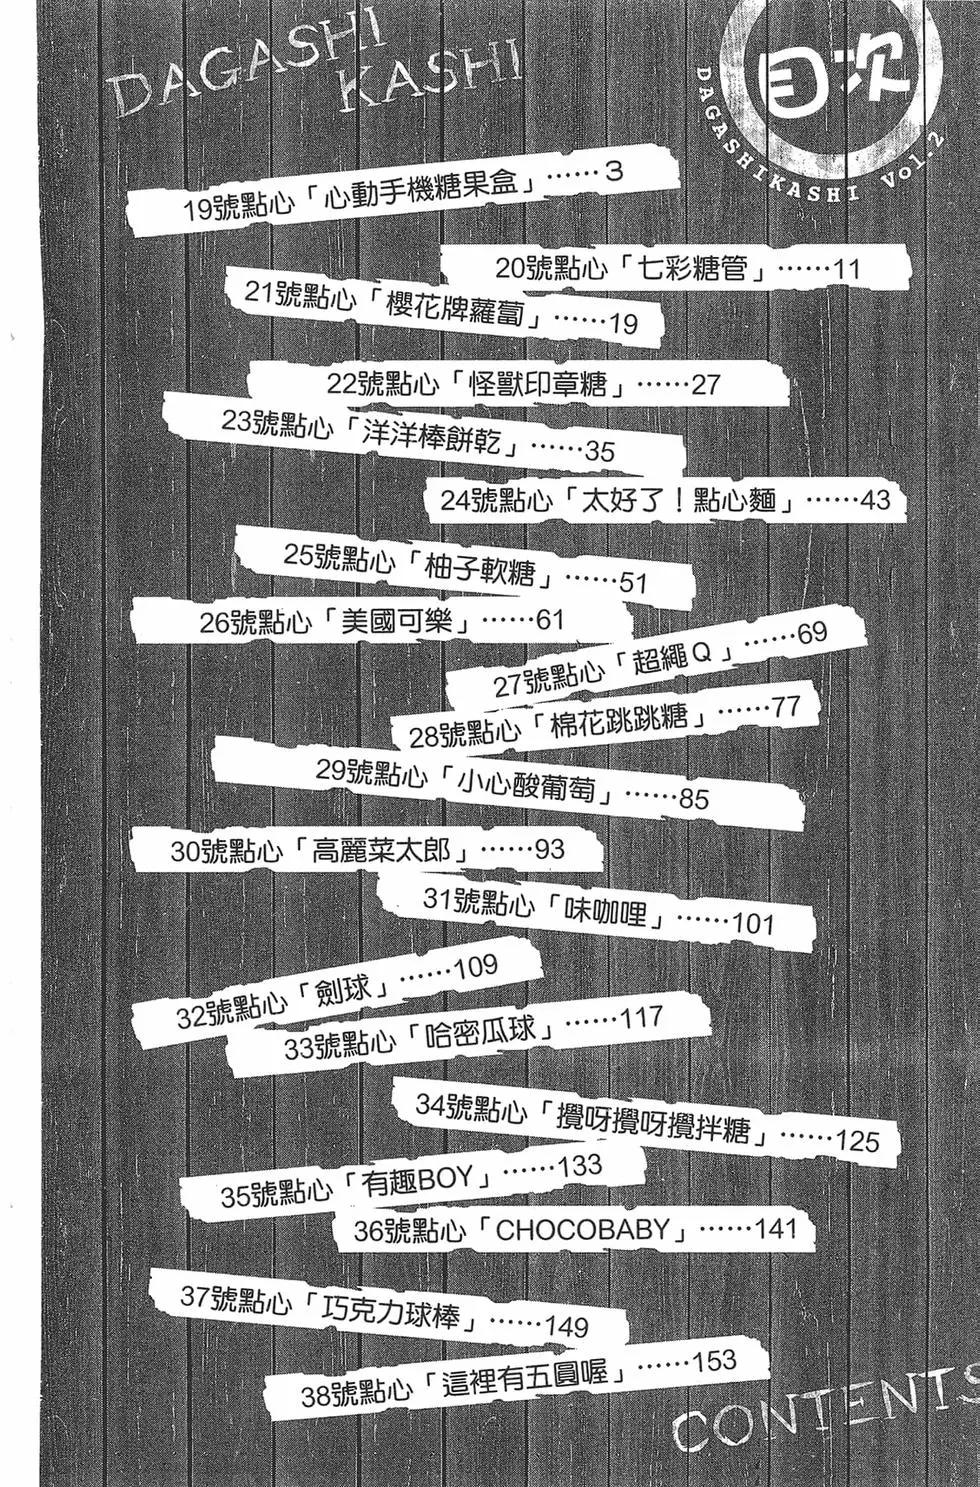 DAGASHI
KASHI
目次
DAGASHIKASHI Vol.2
19號點心「心動手機糖果盒」……3
20號點心「七彩糖管」……11
21號點心「櫻花牌蘿蔔」……19
22號點心「怪獸印章糖」……27
23號點心「洋洋棒餅乾」……35
24號點心「太好了！點心麵」……43
25號點心「柚子軟糖」……51
26號點心「美國可樂」……61
27號點心「超繩Q」……69
28號點心「棉花跳跳糖」……77
29號點心「小心酸葡萄」……85
30號點心「高麗菜太郎」……93
31號點心「味咖哩」……101
32號點心「劍球」……109
33號點心「哈密瓜球」……117
34號點心「攪呀攪呀攪拌糖」……125
35號點心「有趣BOY」……133
36號點心「CHOCOBABY」……141
37號點心「巧克力球棒」……149
38號點心「這裡有五圓喔」……153
CONTENTS